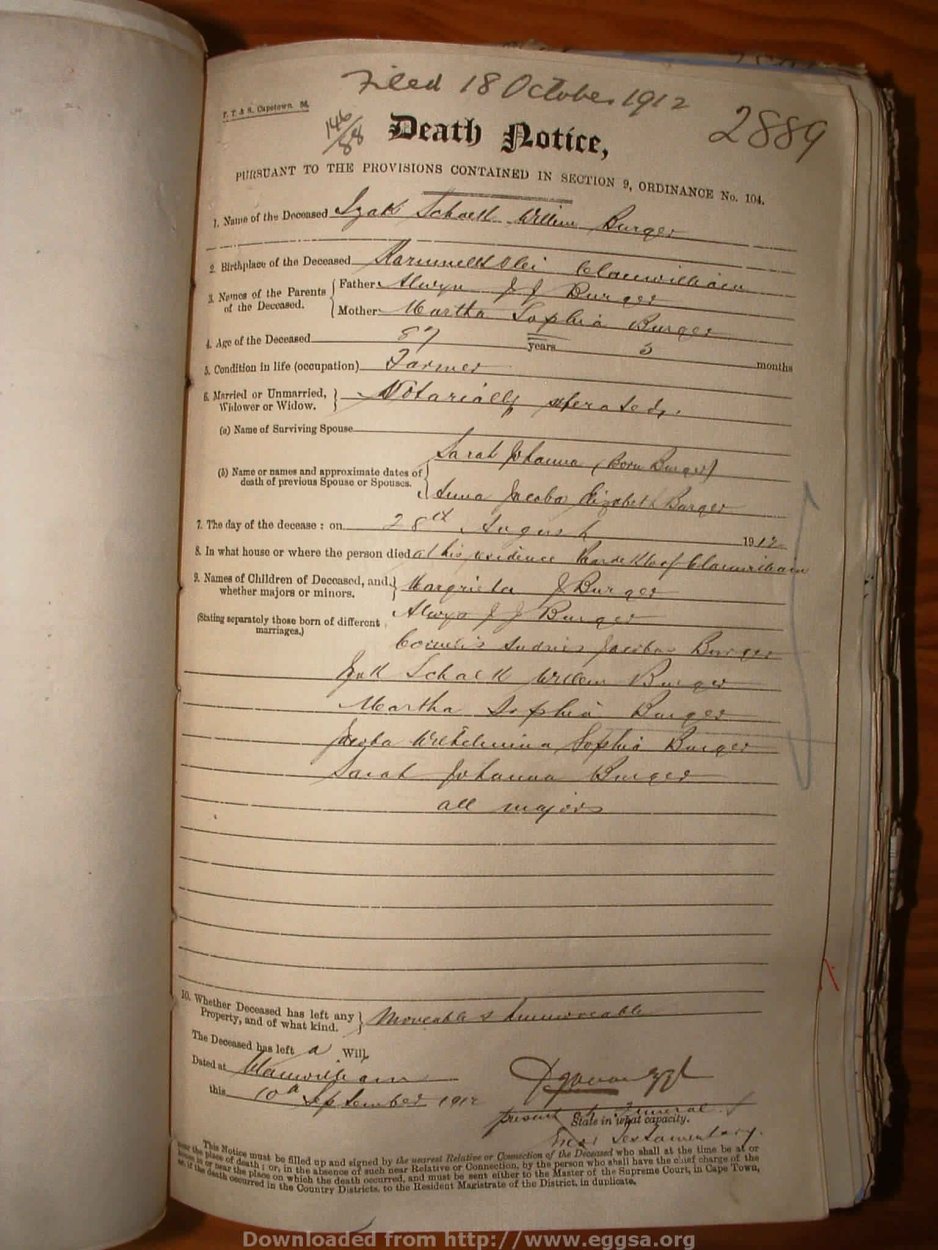 Filed 18 October 1912
T. T. & S. Capetown.
146/88
Death Notice,
2889
PURSUANT TO THE PROVISIONS CONTAINED IN SECTION 9, ORDINANCE No. 104.
1. Name of the Deceased Izak Schalk Willem Burger
2. Birthplace of the Deceased Clanwilliam
3. Names of the Parents of the Deceased. { Father Alwyn J J Burger
Mother Martha Sophia Burger
4. Age of the Deceased 87 years 5 months
5. Condition in life (occupation) Farmer
6. Married or Unmarried, Widower or Widow. } Notarially seperated.
(a) Name of Surviving Spouse
Sarah Johanna (born Burger)
(b) Name or names and approximate dates of death of previous Spouse or Spouses. { Anna Jacoba Elizabeth Burger
7. The day of the decease : on 28th August 1912
8. In what house or where the person died at his residence Clanwilliam
9. Names of Children of Deceased, and whether majors or minors. } Margrieta J Burger
(Stating separately those born of different marriages.) Alwyn J J Burger
Cornelis Andries Jacobus Burger
Izak Schalk Willem Burger
Martha Sophia Burger
Jacoba Wilhelmina Sophia Burger
Sarah Johanna Burger
all majors
10. Whether Deceased has left any Property, and of what kind. } Moveable & Immoveable
The Deceased has left a Will
Dated at Clanwilliam
this 10th September 1912
present at Funeral &
State in what capacity.
Exor Testamentary.
This Notice must be filled up and signed by the nearest Relative or Connection of the Deceased who shall at the time be at or
near the place of death ; or, in the absence of such near Relative or Connection, by the person who shall have the chief charge of the
house in or near the place on which the death occurred, and must be sent either to the Master of the Supreme Court, in Cape Town,
or, if the death occurred in the Country Districts, to the Resident Magistrate of the District, in duplicate.
Downloaded from http://www.eggsa.org